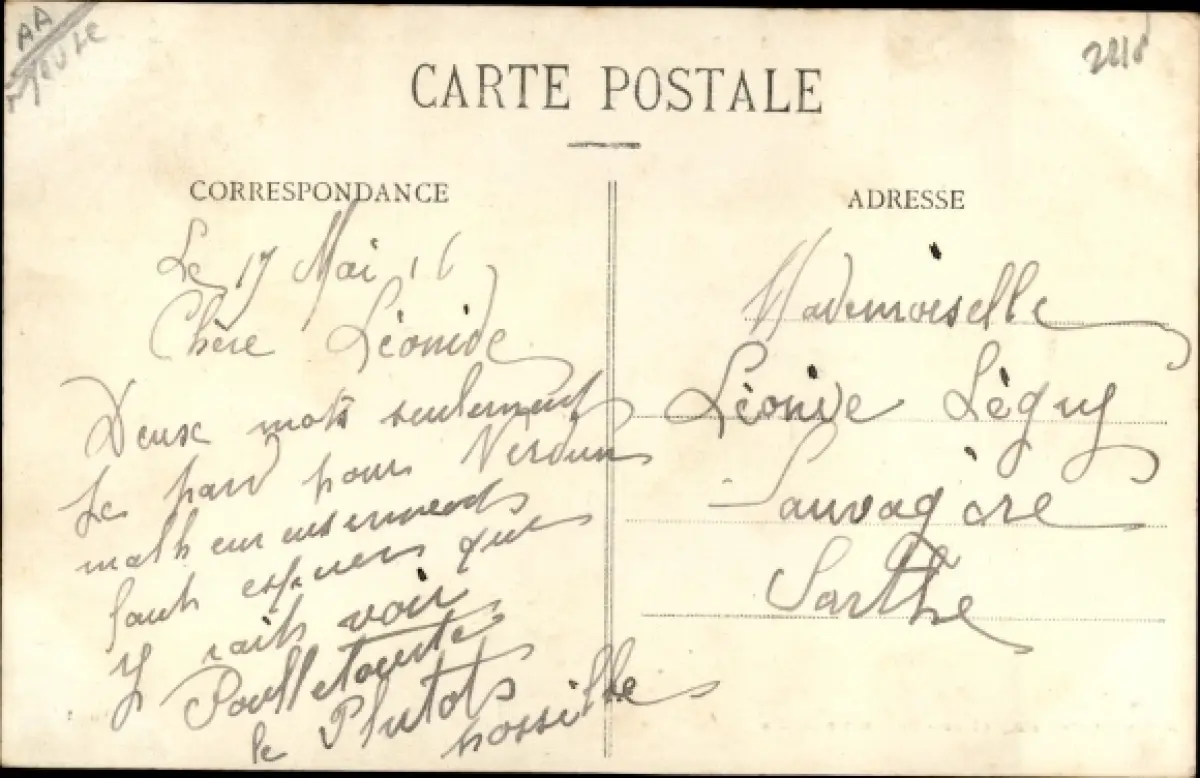 AA
2218
CARTE POSTALE
CORRESPONDANCE
Le 17 Mai 16
Chère Léonide
Deuxe mots seulement
Je pard pour Verdun
malheureusements
faut esperer que
y rait voir
Poulletourte
le Plutots
possible
ADRESSE
Mademoiselle
Léonide Léguy
Sauvagère
Sarthe